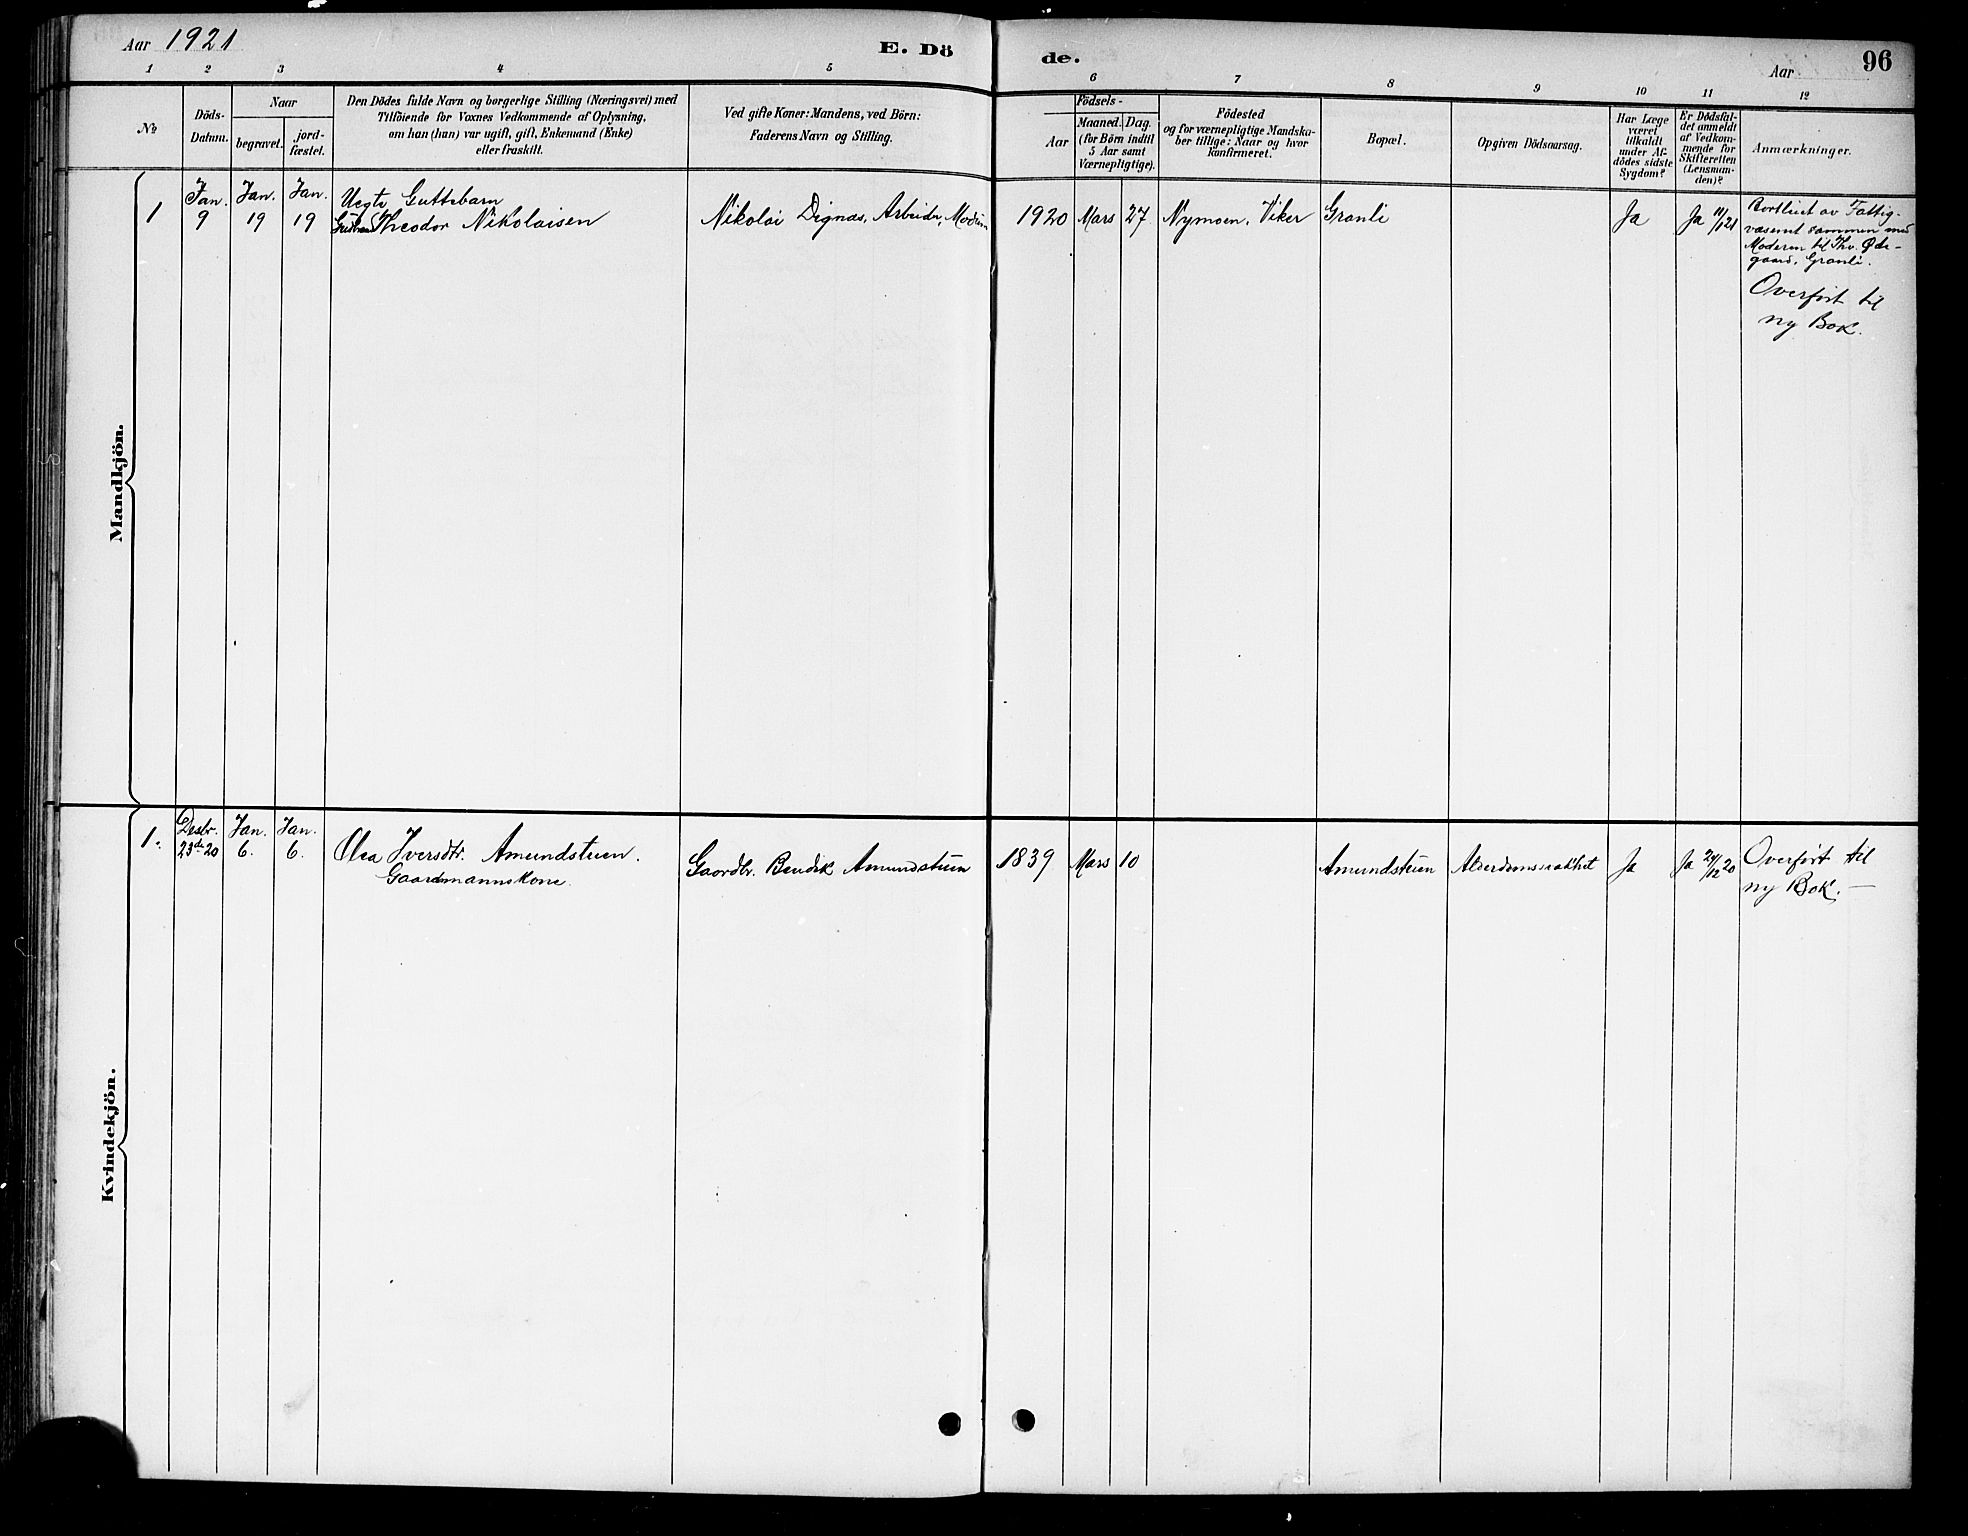 Aar 1921
E. Dö
de.
Aar
96
1 2 3 4 5 6 7 8 9 10 11 12
No
Döds-
Datum.
Naar
begravet.
jord-
fæstet.
Den Dödes fulde Navn og borgerlige Stilling (Næringsvei) med
Tilföiende for Voxnes Vedkommende af Oplysning,
om han (hun) var ugift, gift, Enkemand (Enke)
eller fraskilt.
Ved gifte Koner: Mandens, ved Börn:
Faderens Navn og Stilling.
Födsels-
Aar
Maaned. Dag.
(for Börn indtil
5 Aar samt
Værnepligtige).
Födested
og for værnepligtige Mandska-
ber tillige: Naar og hvor
konfirmeret.
Bopæl.
Opgiven Dödsaarsag.
Har Læge
været
tilkaldt
under Af-
dödes sidste
Sygdom?
Er Dödsfal-
det anmeldt
af Vedkom-
mende for
Skifteretten
(Lensman-
den)?
Anmærkninger.
Mandkjön.
1
Jan.
9
Jan.
19
Jan.
19
Uegte Guttebarn
Theodor Nikolaisen
Nikolai Dignas, Arbeider, Modum
1920 Mars 27
Nymoen, Viker
Granli
Ja
Ja 11/1 21
Bortliset av Fattig-
væsenet sammen med
Moderen til Thv. Øde-
gaard, Granli.
Overført til
ny Bok.
Kvindekjön.
1.
Desbr.
23de 20
Jan.
6.
Jan.
6.
Olea Iversdtr. Amundstuen.
Gaardmannskone.
Gaardbr. Bendik Amundstuen
1839 Mars 10
Amundstuen
Alderdomssvakhet
Ja
Ja 24/12 20
Overført til
ny Bok. —